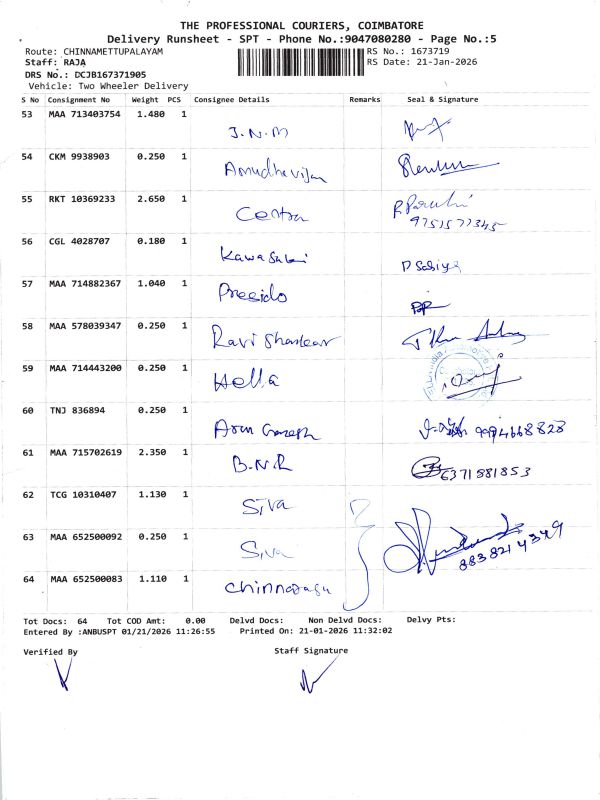 THE PROFESSIONAL COURIERS, COIMBATORE
Delivery Runsheet - SPT - Phone No.:9047080280 - Page No.:5
Route: CHINNAMETTUPALAYAM RS No.: 1673719
Staff: RAJA RS Date: 21-Jan-2026
DRS No.: DCJB167371905
Vehicle: Two Wheeler Delivery
S No Consignment No Weight PCS Consignee Details Remarks Seal & Signature
53 MAA 713403754 1.480 1 J.N.M
54 CKM 9938903 0.250 1 Amudhavijay
55 RKT 10369233 2.650 1 Centra
56 CGL 4028707 0.180 1 Kawasaki P Sabiya
57 MAA 714882367 1.040 1
58 MAA 578039347 0.250 1 Ravi Shankar
59 MAA 714443200 0.250 1 Hella
60 TNJ 836894 0.250 1 Arun Ganesh 9994668828
61 MAA 715702619 2.350 1 B.N.R 6371881853
62 TCG 10310407 1.130 1 Siva
63 MAA 652500092 0.250 1 Siva
64 MAA 652500083 1.110 1
Tot Docs: 64 Tot COD Amt: 0.00 Delvd Docs: Non Delvd Docs: Delvy Pts:
Entered By :ANBUSPT 01/21/2026 11:26:55 Printed On: 21-01-2026 11:32:02
Verified By Staff Signature